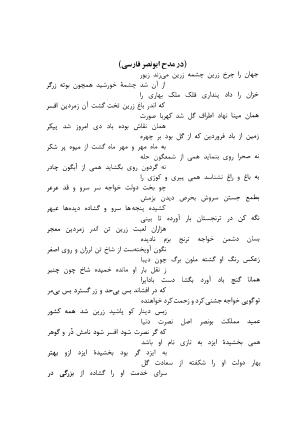 (در مدح ابونصر فارسی)
جهان را چرخ زرین چشمه زرین می‌زند زیور
از آن شد چشمهٔ خورشید همچون بوته زرگر
خزان را داد پنداری فلک ملک بهاری را
که اندر باغ زرین تخت گشت آن زمردین افسر
همان مینا نهاد اطراف گل شد کهربا صورت
همان نقاش بوده باد دی امروز شد پیکر
زمین از باد فروردین که از گل بود پر چهره
به ماه مهر و مهر ماه گشت از میوه پر شکر
نه صحرا روی بنماید همی از شمعگون حله
نه گردون روی بگشاید همی از آبگون چادر
به باغ و راغ نشناسد همی پیری و کوزی را
چو بخت دولت خواجه نسر سرو و قد عرعر
بطمع جستن سروش بحرص دیدن بزمش
کشیده پنجه‌ها سرو و گشاده دیده‌ها عبهر
نگه کن در ترنجستان بار آورده تا بینی
هزاران لعبت زرین تن اندر زمردین معجر
بسان دشمن خواجه ترنج بزم نادیده
نگون آویخته‌ست از شاخ تن لرزان و روی اصفر
زعکس رنگ او گشته ملون برگ چون دیبا
ز نقل بار او مانده خمیده شاخ چون چنبر
همانا گنج باد آورد بگشا دست بادایرا
که در افشاند بس بی‌حد و زر گسترد بس بی‌مر
تو گویی خواجه جشنی کرد و رحمت کرد خواهنده
زبس دینار کو پاشید زرین شد همه کشور
عمید مملکت بونصر اصل نصرت دنیا
که گر نصرت شود افسر شود نامش در و گوهر
همی بخشیدهٔ ایزد به تازی نام او باشد
به ایزد گر بود بخشیدهٔ ایزد ازو بهتر
بهار دولت او را شکفته از سعادت گل
سرای خدمت او را گشاده از بزرگی در